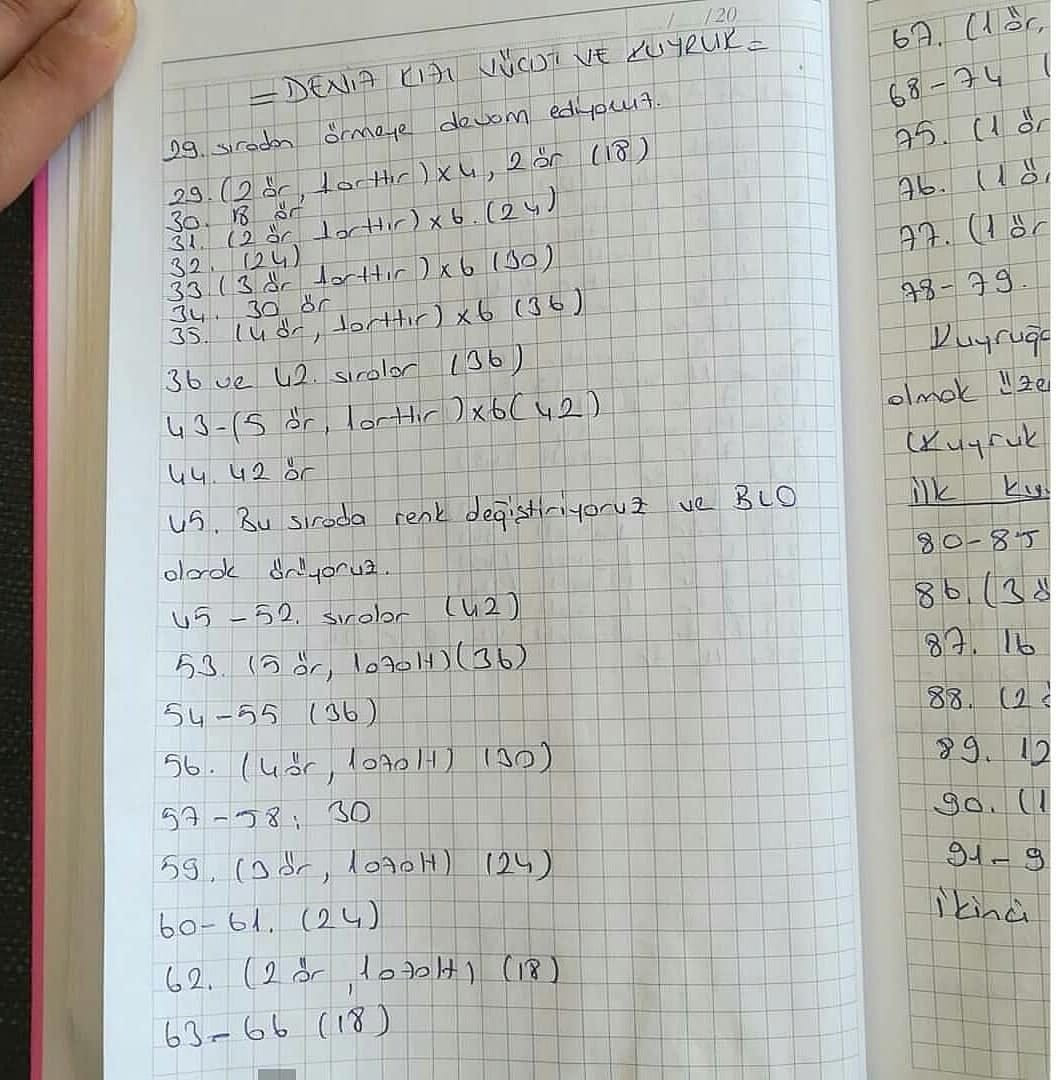 / /20
= DENİZ KIZI VÜCUT VE KUYRUK =
29. sıradan örmeye devam ediyoruz.
29. (2 ör, 1arttır) x 4, 2 ör (18)
30. 18 ör
31. (2 ör 1arttır) x 6. (24)
32. (24)
33 (3 ör 1arttır) x 6 (30)
34. 30 ör
35. (4 ör, 1arttır) x 6 (36)
36 ve 42. sıralar (36)
43-(5 ör, 1arttır) x 6 (42)
44. 42 ör
45. Bu sırada renk değiştiriyoruz ve BLO
olarak örüyoruz.
45 - 52. sıralar (42)
53. (5 ör, 1azalt) (36)
54-55 (36)
56. (4 ör, 1azalt) (30)
57-58: 30
59. (3 ör, 1azalt) (24)
60-61. (24)
62. (2 ör, 1azalt) (18)
63-66 (18)
67. (1 ör,
68-74 (
75. (1 ör
76. (1 ö
77. (1 ör
78-79.
Kuyruğ
olmak üze
(Kuyruk
ilk ku
80-85
86. (3 ö
87. 16
88. (2
89. 12
90. (1
91-9
İkinci